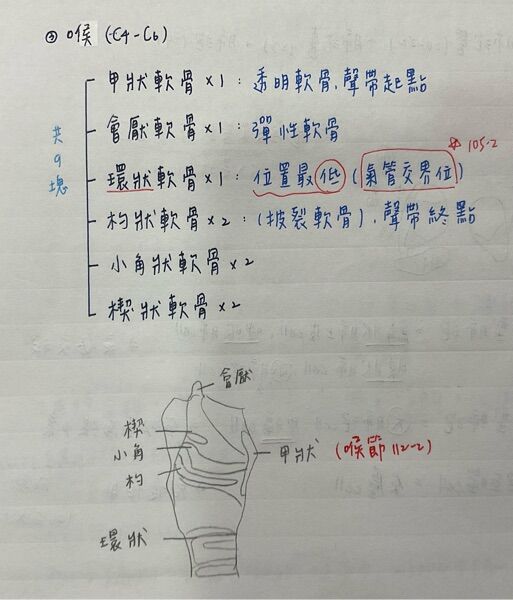 ② 喉 (C4-C6)
共9塊
甲狀軟骨×1：透明軟骨，聲帶起點
會厭軟骨×1：彈性軟骨
☆105-2
環狀軟骨×1：位置最低 (氣管交界位)
杓狀軟骨×2：(披裂軟骨)，聲帶終點
小角狀軟骨×2
楔狀軟骨×2
會厭
楔
小角
甲狀 (喉節112-2)
杓
環狀